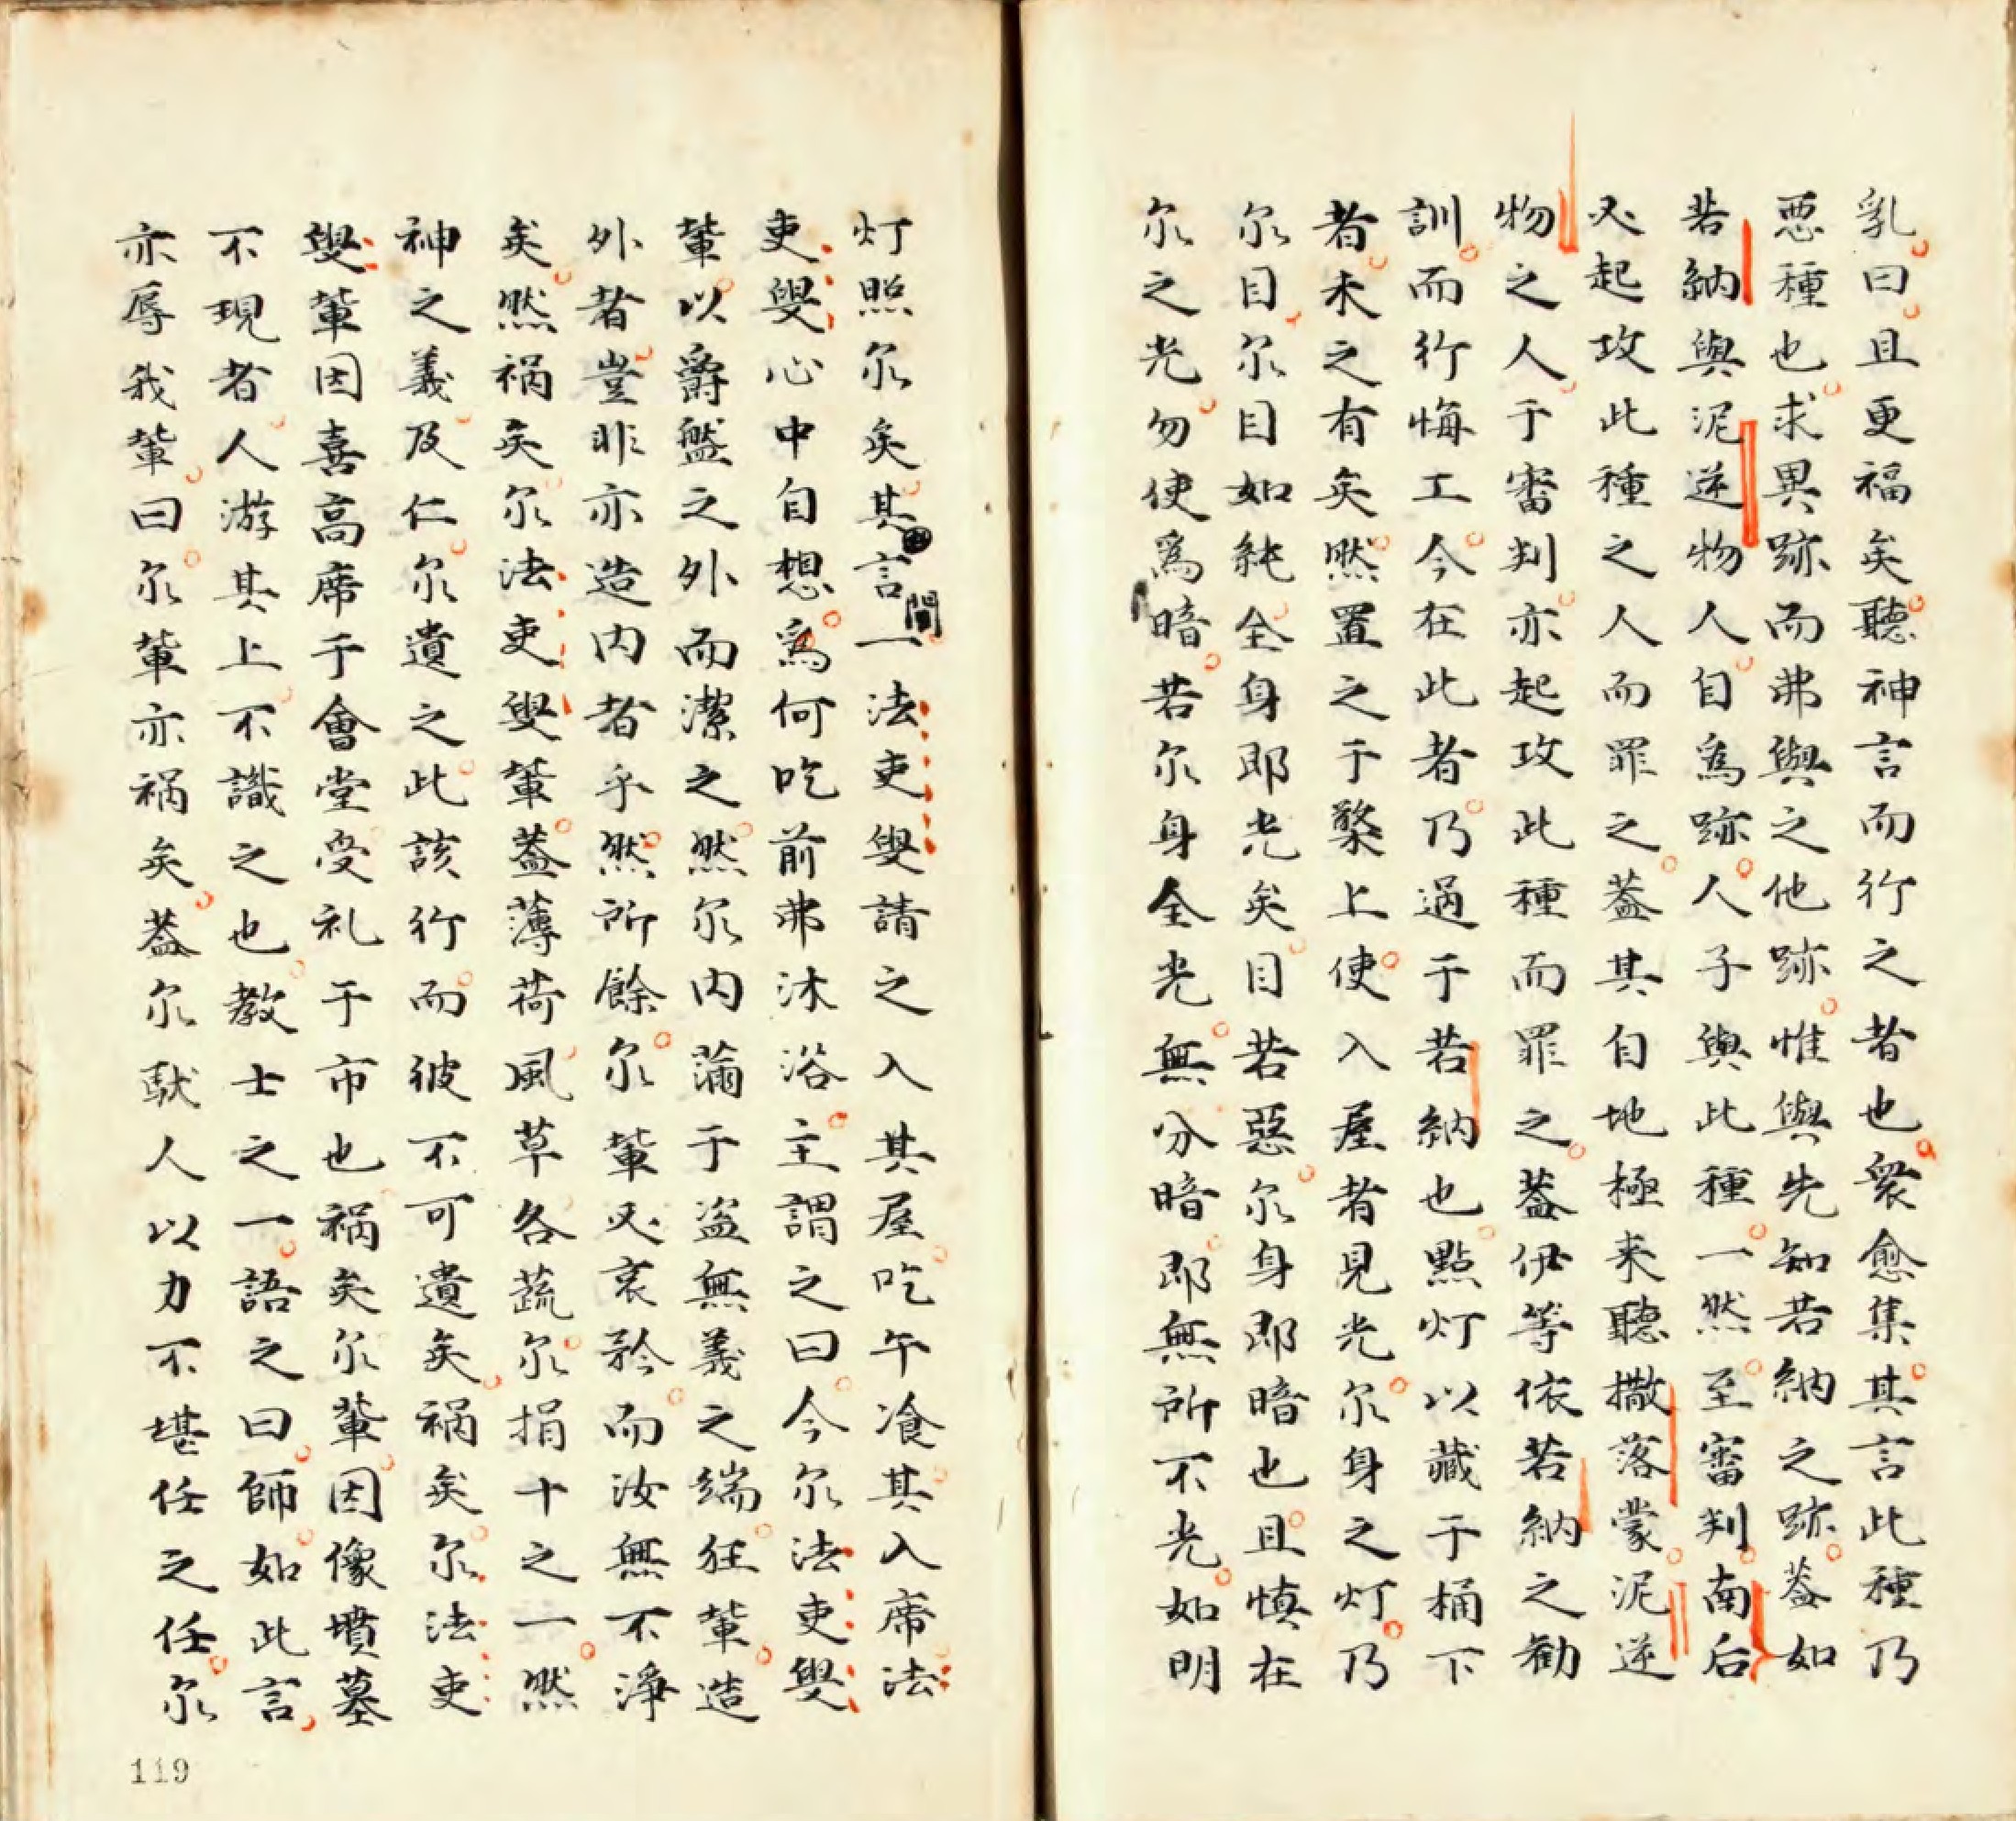 乳曰且更福矣聽神言而行之者也衆愈集其言此種乃
惡種也求異跡而弗與之他跡惟與先知若納之跡蓋如
若納與泥逆物人自爲跡人子與此種一然至審判南后
必起攻此種之人而罪之蓋其自地極来聽撒落蒙泥逆
物之人于審判亦起攻此種而罪之蓋伊等依若納之勸
訓而行悔工今在此者乃過于若納也點灯以藏于桶下
者未之有矣然置之于檠上使入屋者見光尔身之灯乃
尔目尔目如純全身即光矣目若惡尔身即暗也且慎在
尔之光勿使爲暗若尔身全光無分暗即無所不光如明
灯照尔矣其言間一法吏叟請之入其屋吃午飡其入席法
吏叟心中自想爲何吃前弗沐浴主謂之曰今尔法吏叟
輩以爵盤之外而潔之然尔内滿于盗無義之端狂輩造
外者豈非亦造内者乎然所餘尔輩必哀矜而汝無不淨
矣然祸矣尔法吏叟輩蓋薄荷風草各蔬尔捐十之一然
神之義及仁尔遺之此該行而彼不可遺矣祸矣尔法吏
叟輩因喜高席于會堂受礼于市也祸矣尔輩因像墳墓
不現者人游其上不識之也教士之一語之曰師如此言
亦辱我輩曰尔輩亦祸矣蓋尔馱人以力不堪任之任尔
119